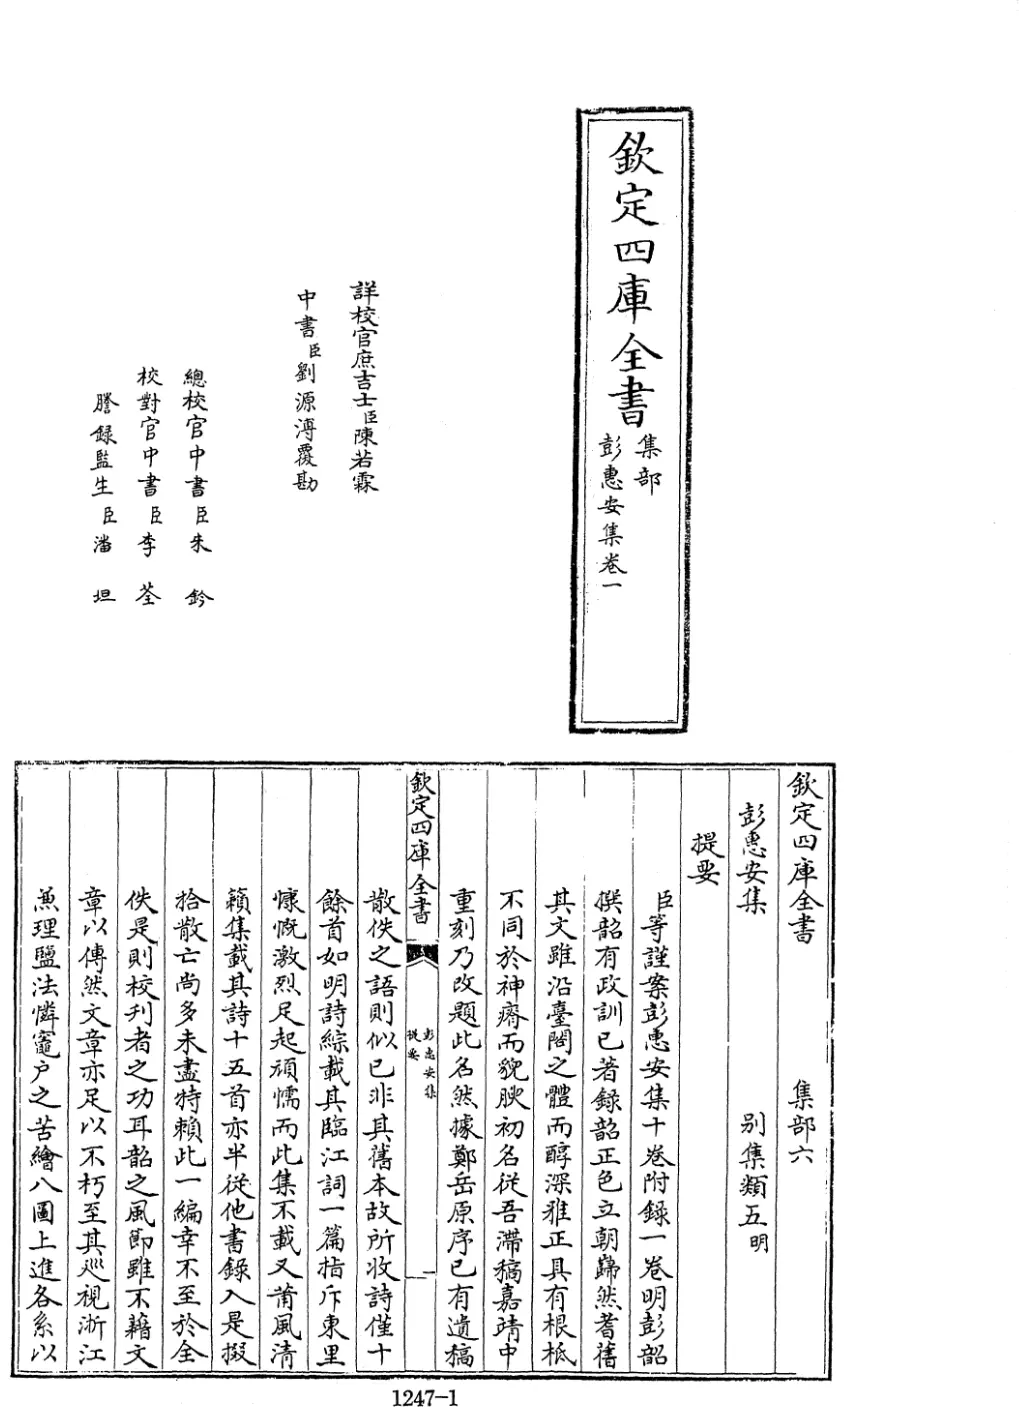 欽定四庫全書
集部
彭惠安集卷一
詳校官庶吉士臣陳若霖
中書臣劉源溥覆勘
總校官中書臣朱鈐
校對官中書臣李荃
謄錄監生臣潘坦
欽定四庫全書 集部六
彭惠安集 别集類五明
提要
臣等謹案彭惠安集十卷附録一卷明彭韶
撰韶有政訓已著録韶正色立朝巋然耆舊
其文雖沿臺閣之體而醇深雅正具有根柢
不同於神瘠而貌腴初名從吾滯稿嘉靖中
重刻乃改題此名然據鄭岳原序已有遺稿
欽定四庫全書
彭惠安集
提要
一
散佚之語則似已非其舊本故所收詩僅十
餘首如明詩綜載其臨江詞一篇指斥東里
慷慨激烈足起頑懦而此集不載又莆風清
籟集載其詩十五首亦半從他書錄入是掇
拾散亡尚多未盡特賴此一編幸不至於全
佚是則校刋者之功耳韶之風節雖不藉文
章以傳然文章亦足以不朽至其廵視浙江
兼理鹽法憐竈户之苦繪八圖上進各系以
1247-1